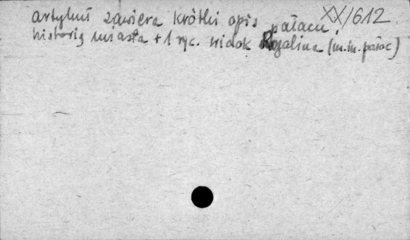 XX/612.
artykuł zawiera krótki opis pałacu,
historię miasta + 1 ryc. widok Rogalina (m.in. pałac)